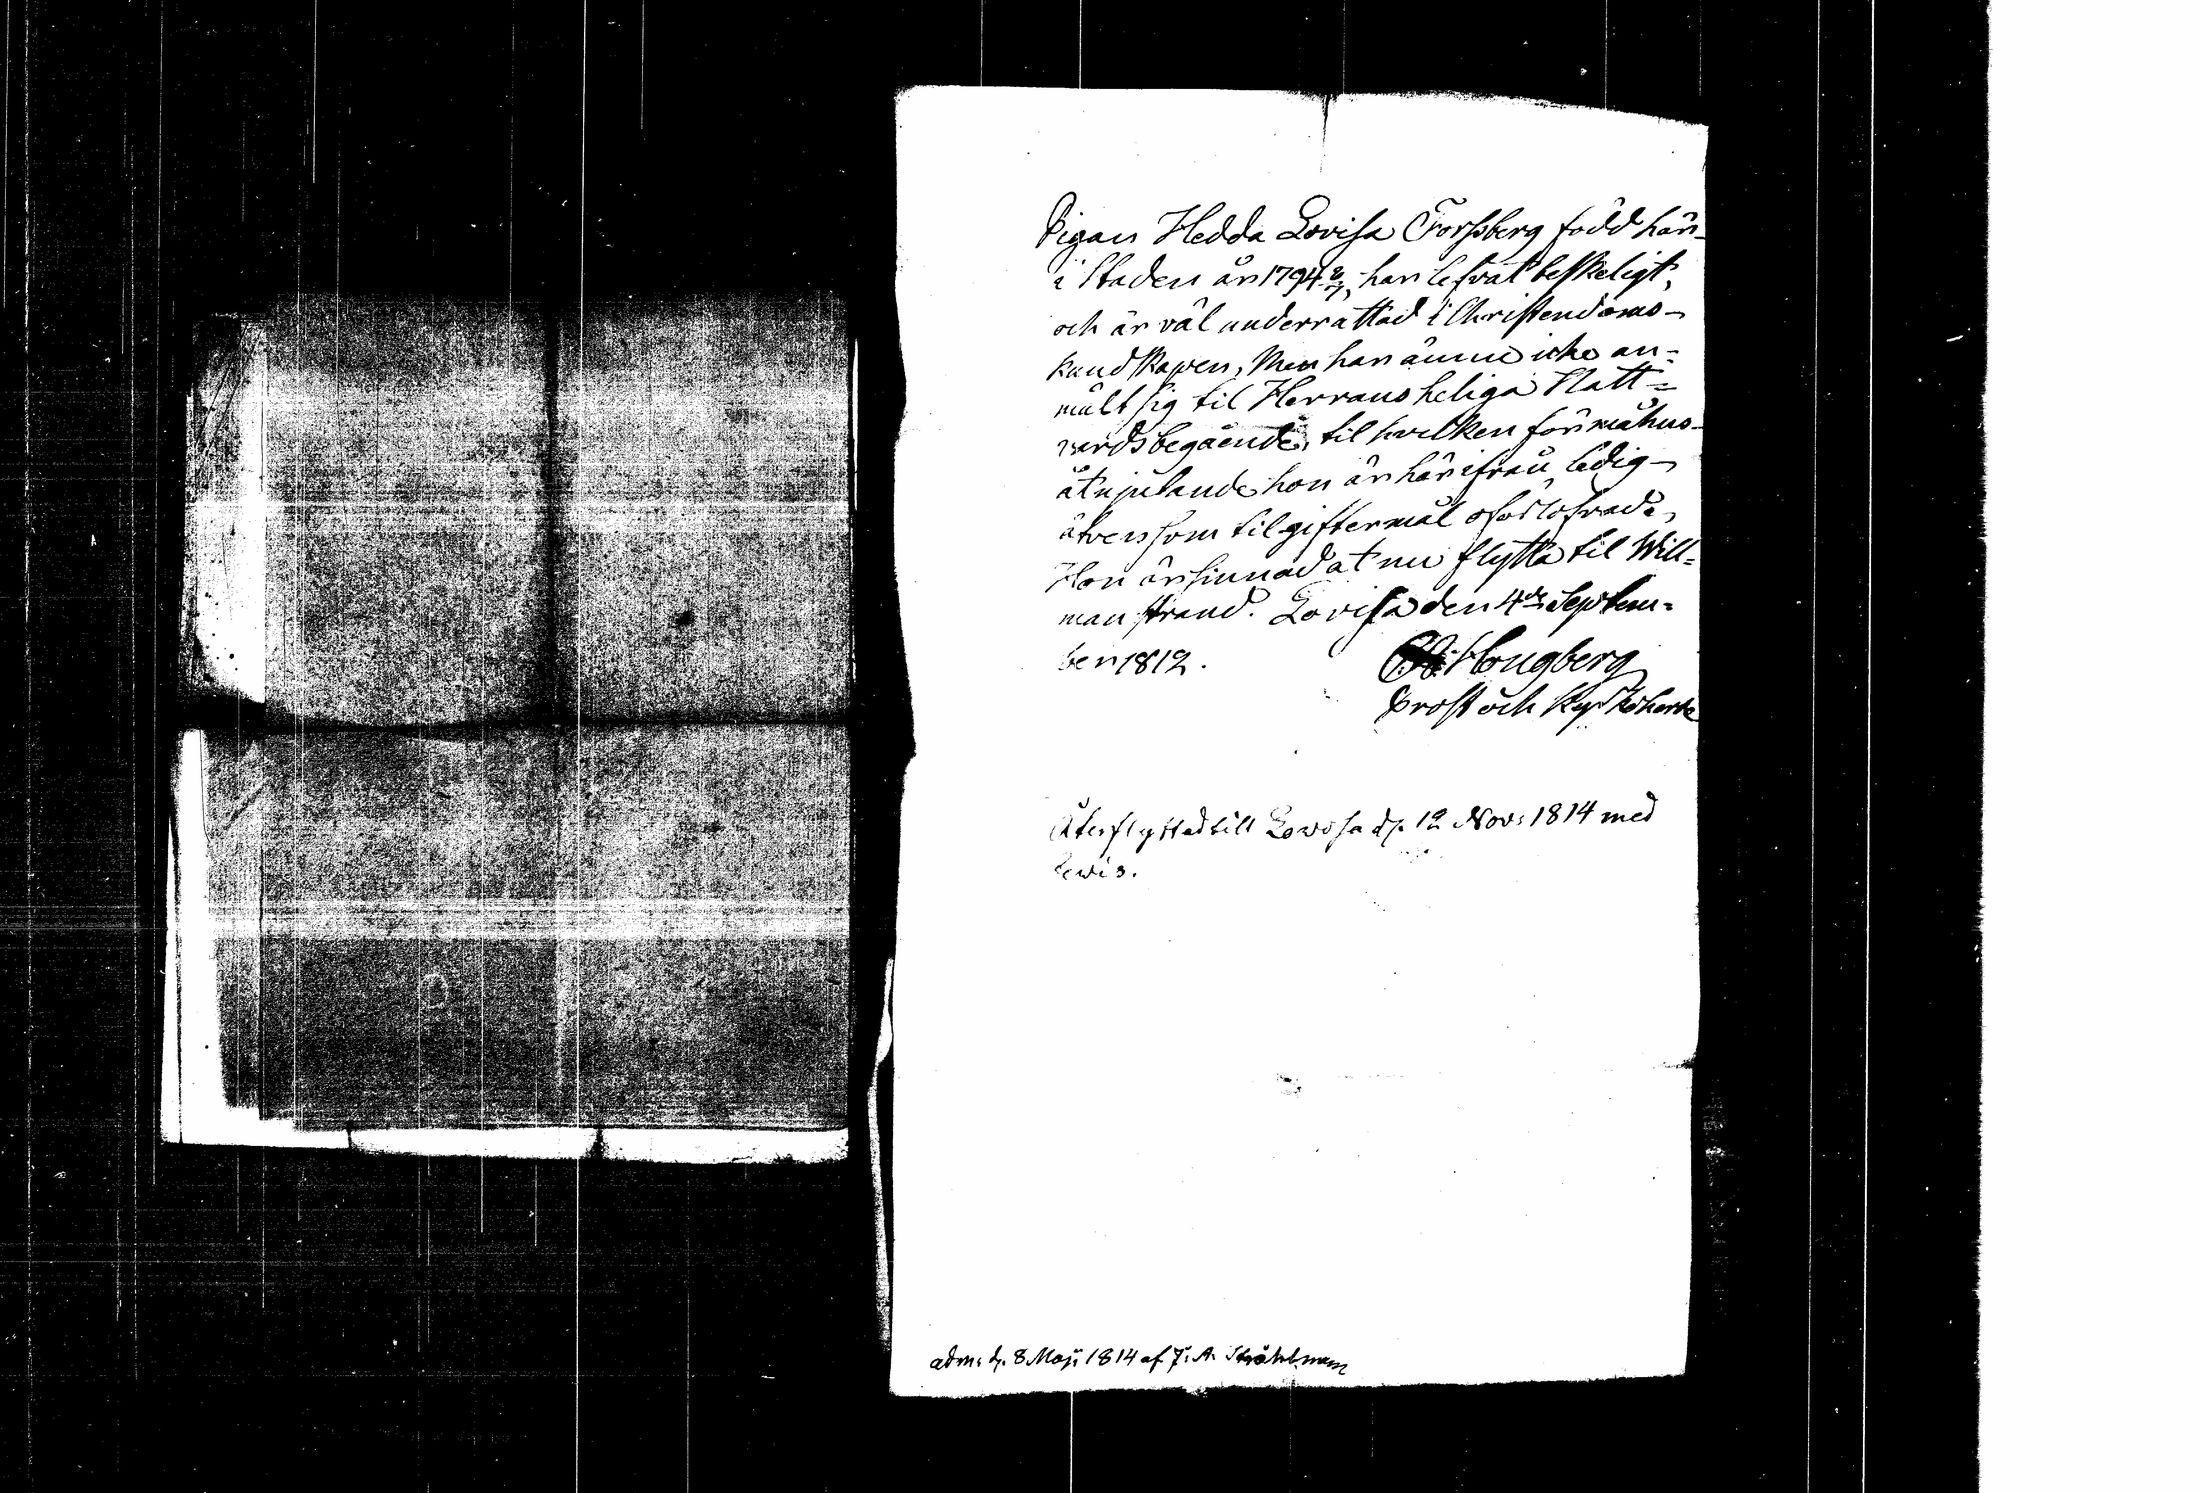 Pigan Hedda Lovisa Forssberg född här
i Staden år 1794 8/7, har lefvat beskeligt,
och är väl underrättad i Christendoms-
kundskapen, Men har ännu icke an=
mält sig til Herrans heliga Natt=
vardsbegående, til hvilken förmåhns
åtnjutande hon är härifrån ledig
ätven som til giftermål oförlofvad.
Hon är sinnad at nu flytta til Will=
manstrand. Lovisa den 4de Septem=
ber 1812.
Hougberg
Prost och Kyrkoherde
Återflyttad till Lovisa d. 12 Nov: 1814 med
bevis.
adm: d. 8 Maji 1814 af J: A: Stråhlman